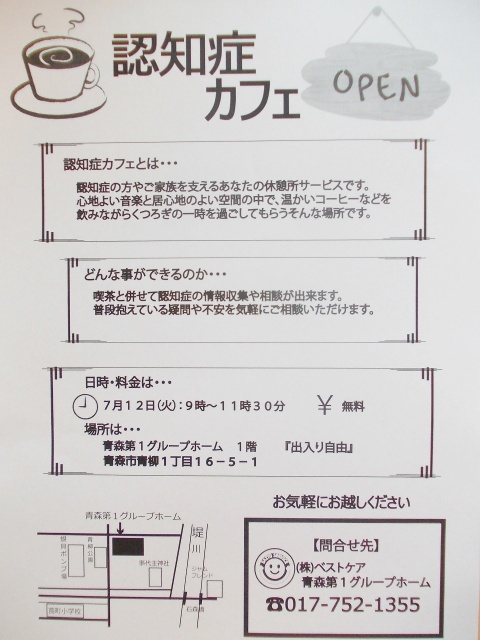 認知症
カフェ
OPEN
認知症カフェとは・・・
認知症の方やご家族を支えるあなたの休憩所サービスです。
心地よい音楽と居心地のよい空間の中で、温かいコーヒーなどを
飲みながらくつろぎの一時を過ごしてもらうそんな場所です。
どんな事ができるのか・・・
喫茶と併せて認知症の情報収集や相談が出来ます。
普段抱えている疑問や不安を気軽にご相談いただけます。
日時・料金は・・・
7月12日(火):9時~11時30分 ¥ 無料
場所は・・・
青森第1グループホーム 1階 『出入り自由』
青森市青柳1丁目16-5-1
お気軽にお越しください
青森第1グループホーム
堤川
青柳公園
事代主神社
ジャムフレンド
石森橋
【問合せ先】
(株)ベストケア
青森第1グループホーム
☎017-752-1355